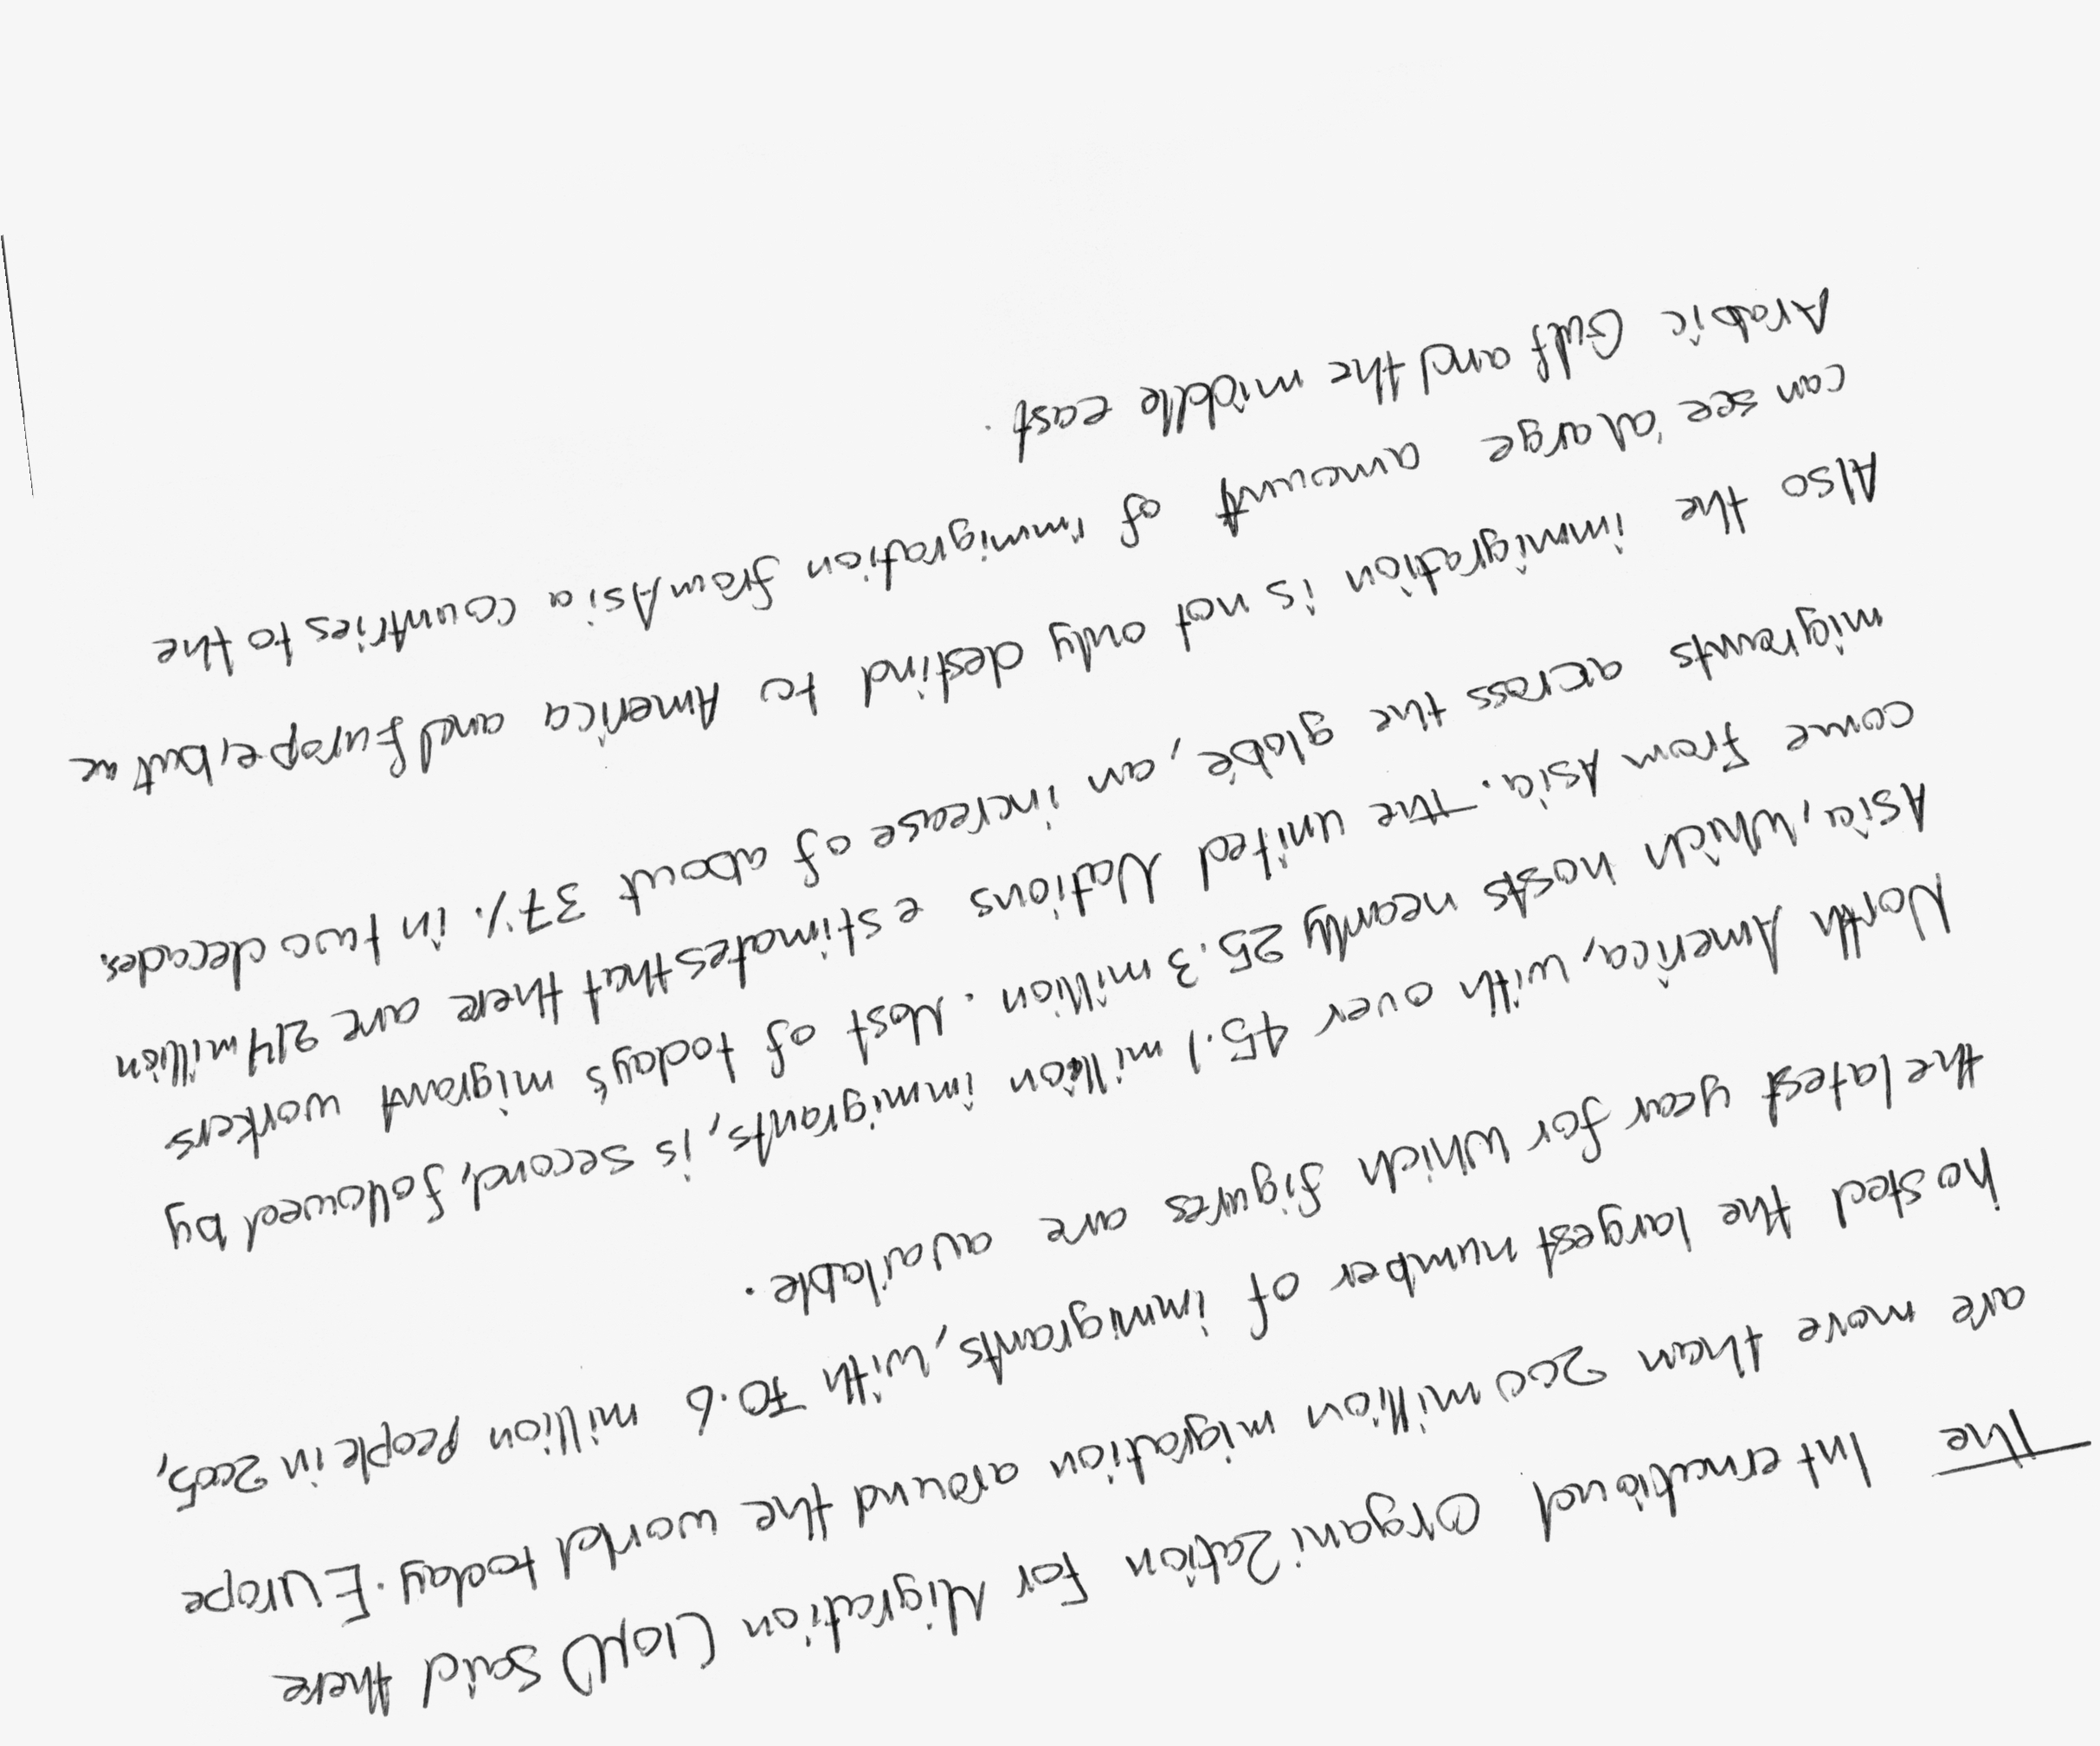 The International Organization For Migration (IOM) said there
are more than 200 million migration around the world today. Europe
hosted the largest number of immigrants, with 70.6 million People in 2005,
the latest year for which figures are available.
North America, with over 45.1 million immigrants, is second, followed by
Asia, which hosts nearly 25.3 million. Most of today's migrant workers
come from Asia. The united Nations estimates that there are 214 million
migrants across the globe, an increase of about 37% in two decades.
Also the immigration is not only destind to America and Europe, but we
can see alarge amount of immigration from Asia countries to the
Arabic Gulf and the middle east.